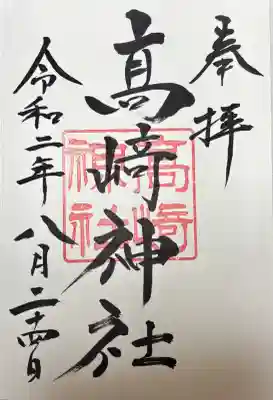 奉拝
髙﨑神社
令和二年八月二十四日
高﨑
神社